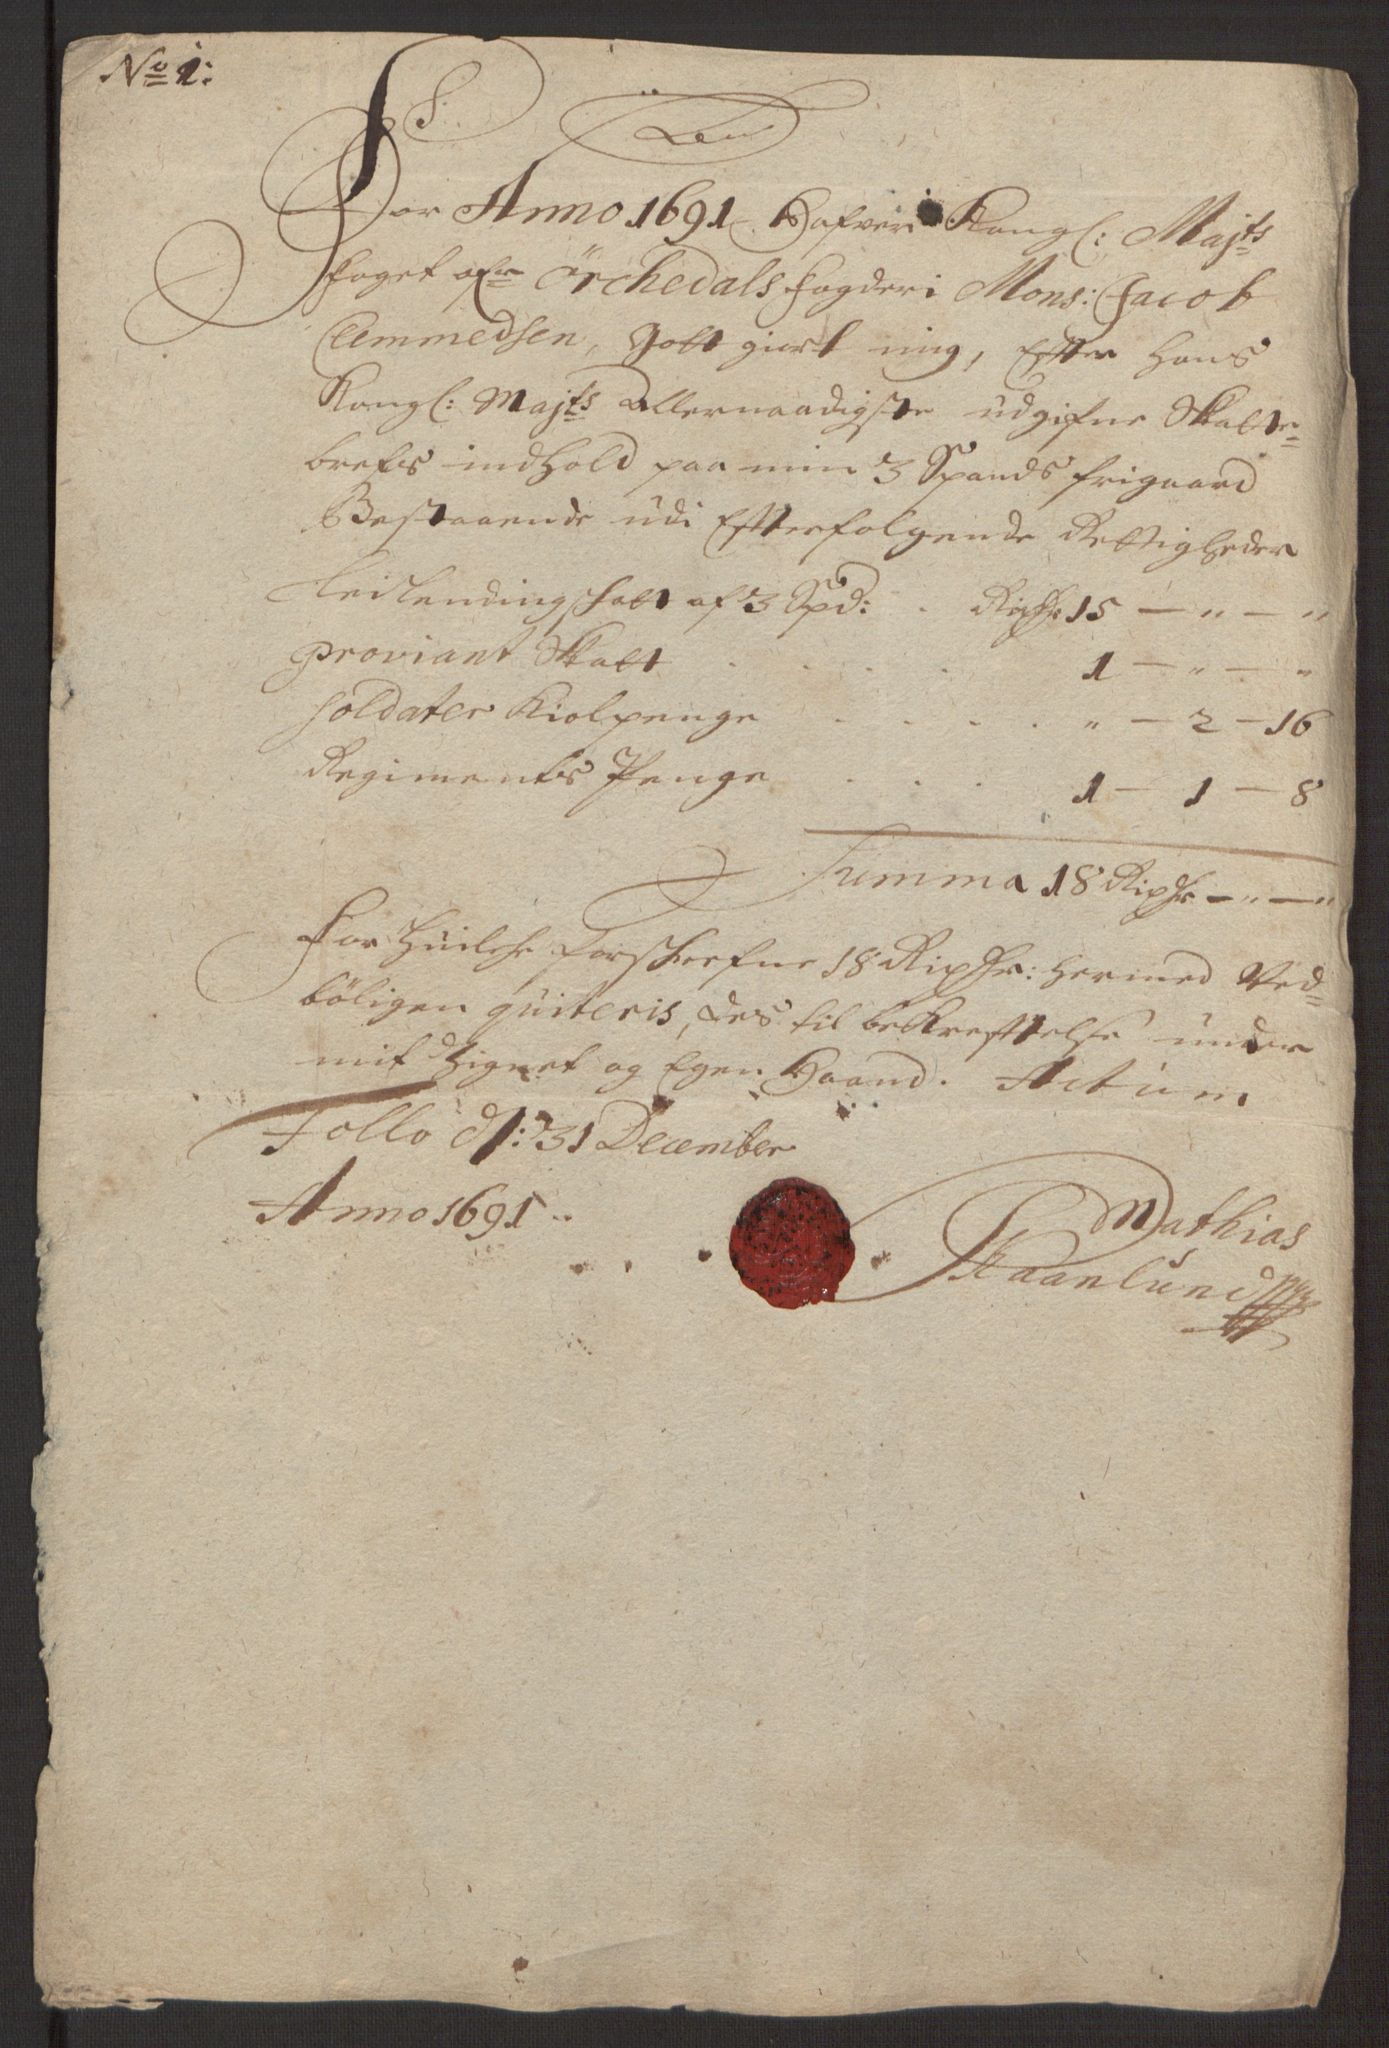 No 1:
For Anno 1691 Hafver Kongl: Majts
foget ofr Örchedals fogderi Mons: Jacob
Clemmedsen, Gott giort mig, Efter Hans
Kongl: Majts Allernaadigste udgifne Skatte-
brefs indhold paa min 3 Spands frigaard
Bestaaende udi Efterfolgende Rettigheder
Leilendingschatt af 3 Spd: . Rixdr 15 — " — "
Proviant Skatt . . . . 1 — " — "
Soldater Kiolpenge . . . . " — 2 — 16
Regiments Penge . . . 1 — 1 — 8
Summa 18 Rixdr — " — "
For huilche forschrefne 18 Rixdr: hermed Ved-
böligen quiteris, des til bekreftelse under
mit Zignet og Egen Haand. Actum
Follo d: 31 December
Anno 1691
Mathias
Skaanlund